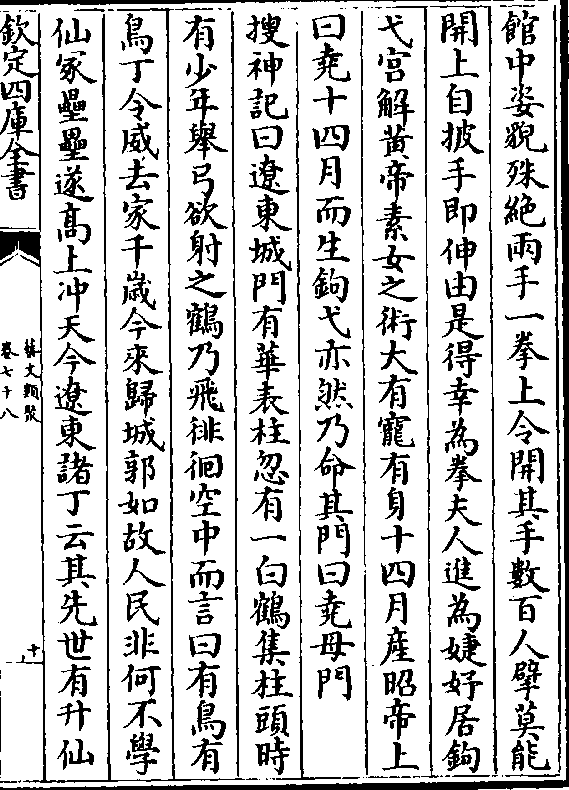 館中姿貌殊絶兩手一拳上令開其手數百人擘莫能
開上自披手即伸由是得幸為拳夫人進為婕妤居鉤
弋宮解黃帝素女之術大有寵有身十四月産昭帝上
曰堯十四月而生鉤弋亦然乃命其門曰堯母門
搜神記曰遼東城門有華表柱忽有一白鶴集柱頭時
有少年舉弓欲射之鶴乃飛徘徊空中而言曰有鳥有
鳥丁令威去家千嵗今來歸城郭如故人民非何不學
仙冢壘壘遂髙上冲天今遼東諸丁云其先世有升仙
欽定四庫全書
藝文類聚
卷七十八
十